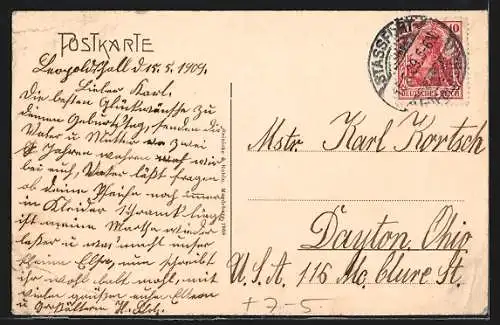 POSTKARTE
Leopoldshall d 15. 5. 1909.
Lieber Karl.
Die besten Glückwünsche zu
deinem Geburtstag, senden dir
Vater u Mutter vor Zwei
Jahren waren wir
bei euch, Vater läßt fragen
ob deine Pfeife noch immer
im Kleider Schrank liegt
ist meine Martha wieder
u was macht unser
kleine Else, nun schreibt
ihr wohl bald mal, mit
vielen grüßen eure Eltern
u
STASSFURT
10
DEUTSCHES REICH
Mstr. Karl Kortsch
Dayton Ohio
U. S. A. 116 Mc. Clure St.
+ 7-5.